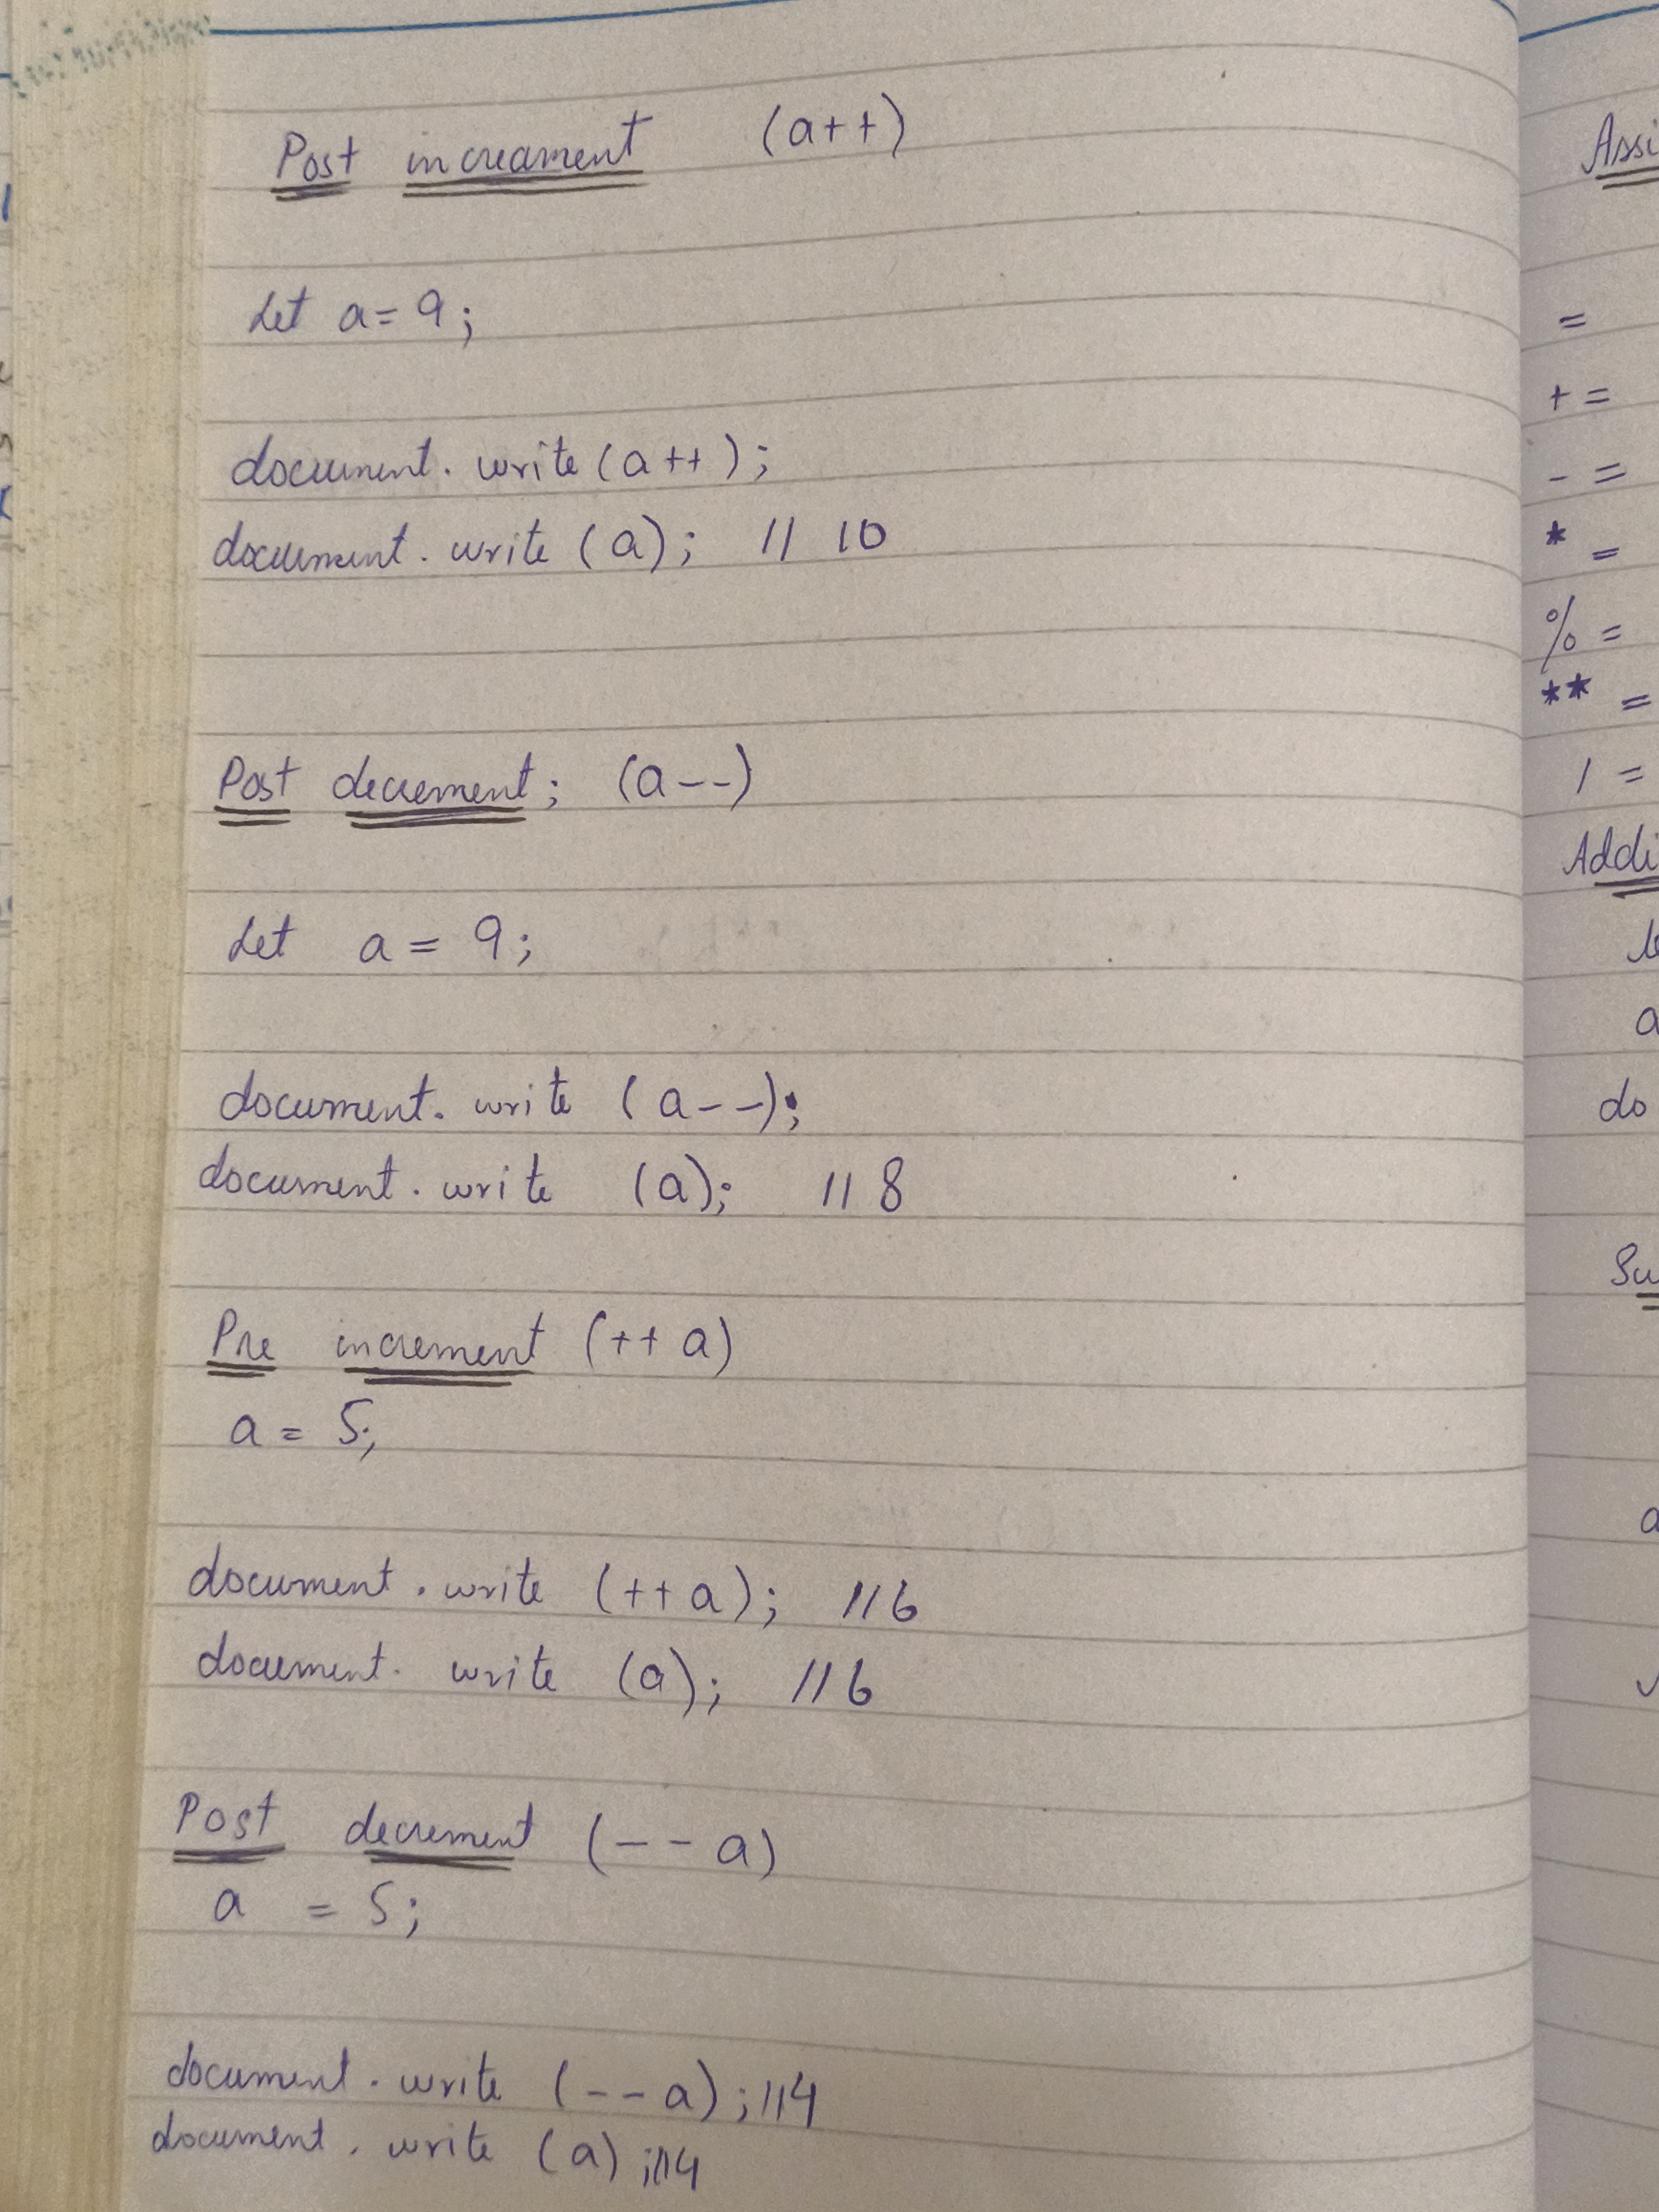 Post increament (a++)
Let a = 9;
document. write (a++);
document. write (a); // 10
Post decrement; (a--)
Let a = 9;
document. write (a--);
document. write (a); // 8
Pre increment (++a)
a = 5;
document. write (++a); //6
document. write (a); //6
Post decrement (--a)
a = 5;
document. write (--a); //4
document. write (a); //4
=
+=
-=
*=
%=
**=
/=
a
do
a